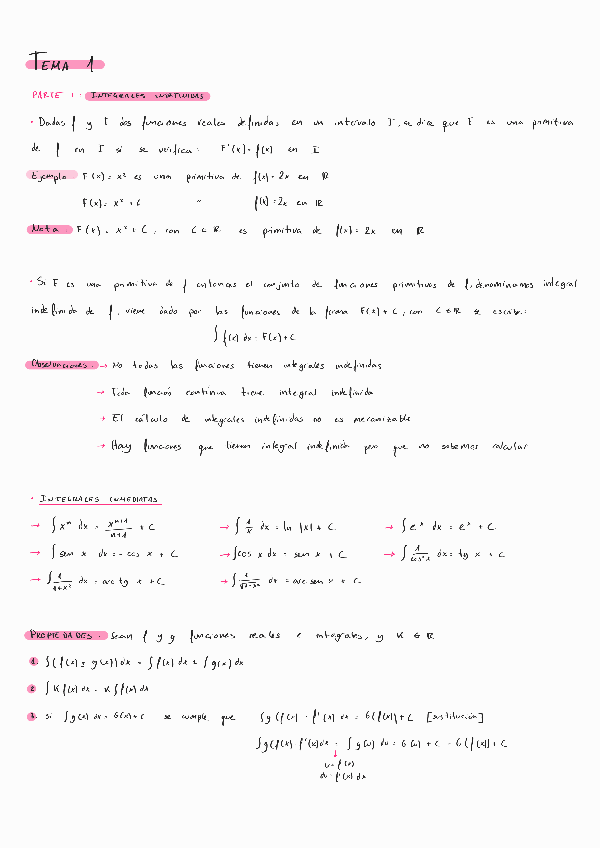 TEMA 1
PARTE 1: INTEGRALES INDEFINIDAS
· Dadas f y F dos funciones reales definidas en un intervalo I, se dice que F es una primitiva
de f en I si se verifica: F'(x) = f(x) en I
Ejemplo F(x) = x² es una primitiva de f(x) = 2x en ℝ
F(x) = x² + C " f(x) = 2x en ℝ
Nota: F(x) = x² + C, con C ∈ ℝ es primitiva de f(x) = 2x en ℝ
· Si F es una primitiva de f entonces el conjunto de funciones primitivas de f, denominamos integral
indefinida de f, viene dado por las funciones de la forma F(x) + C, con C ∈ ℝ se escribe:
∫ f(x) dx = F(x) + C
Observaciones: → No todas las funciones tienen integrales indefinidas
→ Toda función continua tiene integral indefinida
→ El cálculo de integrales indefinidas no es mecanizable
→ Hay funciones que tienen integral indefinida pero que no sabemos calcular
· INTEGRALES INMEDIATAS
→ ∫ xⁿ dx = xⁿ⁺¹/(n+1) + C → ∫ 1/x dx = ln |x| + C → ∫ eˣ dx = eˣ + C
→ ∫ sen x dx = - cos x + C → ∫ cos x dx = sen x + C → ∫ 1/cos²x dx = tg x + C
→ ∫ 1/(1+x²) dx = arc tg x + C → ∫ 1/√(1-x²) dx = arc sen x + C
PROPIEDADES: Sean f y g funciones reales e integrales, y K ∈ ℝ
1. ∫ (f(x) ± g(x)) dx = ∫ f(x) dx ± ∫ g(x) dx
2. ∫ K f(x) dx = K ∫ f(x) dx
3. si ∫ g(x) dx = G(x) + C se cumple que ∫ g(f(x)) · f'(x) dx = G(f(x)) + C [sustitución]
∫ g(f(x)) · f'(x) dx = ∫ g(u) du = G(u) + C = G(f(x)) + C
↓
u = f(x)
du = f'(x) dx